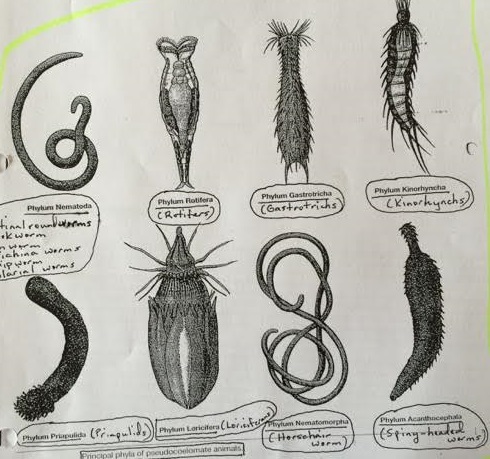 Phylum Nematoda
Phylum Rotifera
(Rotifers)
Phylum Gastrotricha
(Gastrotrichs)
Phylum Kinorhyncha
(Kinorhynchs)
tinal roundworms
kworm
worm
ichina worms
ipworm
larial worms
Phylum Priapulida (Priapulids)
Phylum Loricifera (Loriciferans)
Phylum Nematomorpha
(Horsehair
worm)
Phylum Acanthocephala
(Spiny-headed
worms)
Principal phyla of pseudocoelomate animals